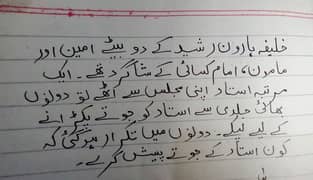 خلیفہ ہارون رشید کے دو بیٹے امین اور
مامون، امام کسائی کے شاگرد تھے۔ ایک
مرتبہ استاد اپنی مجلس سے اٹھے تو دونوں
بھائی جلدی سے استاد کو جوتے پکڑانے
کے لیے لپکے۔ دونوں میں تکرار ہو گئی کہ
کون استاد کے جوتے پیش کرے۔